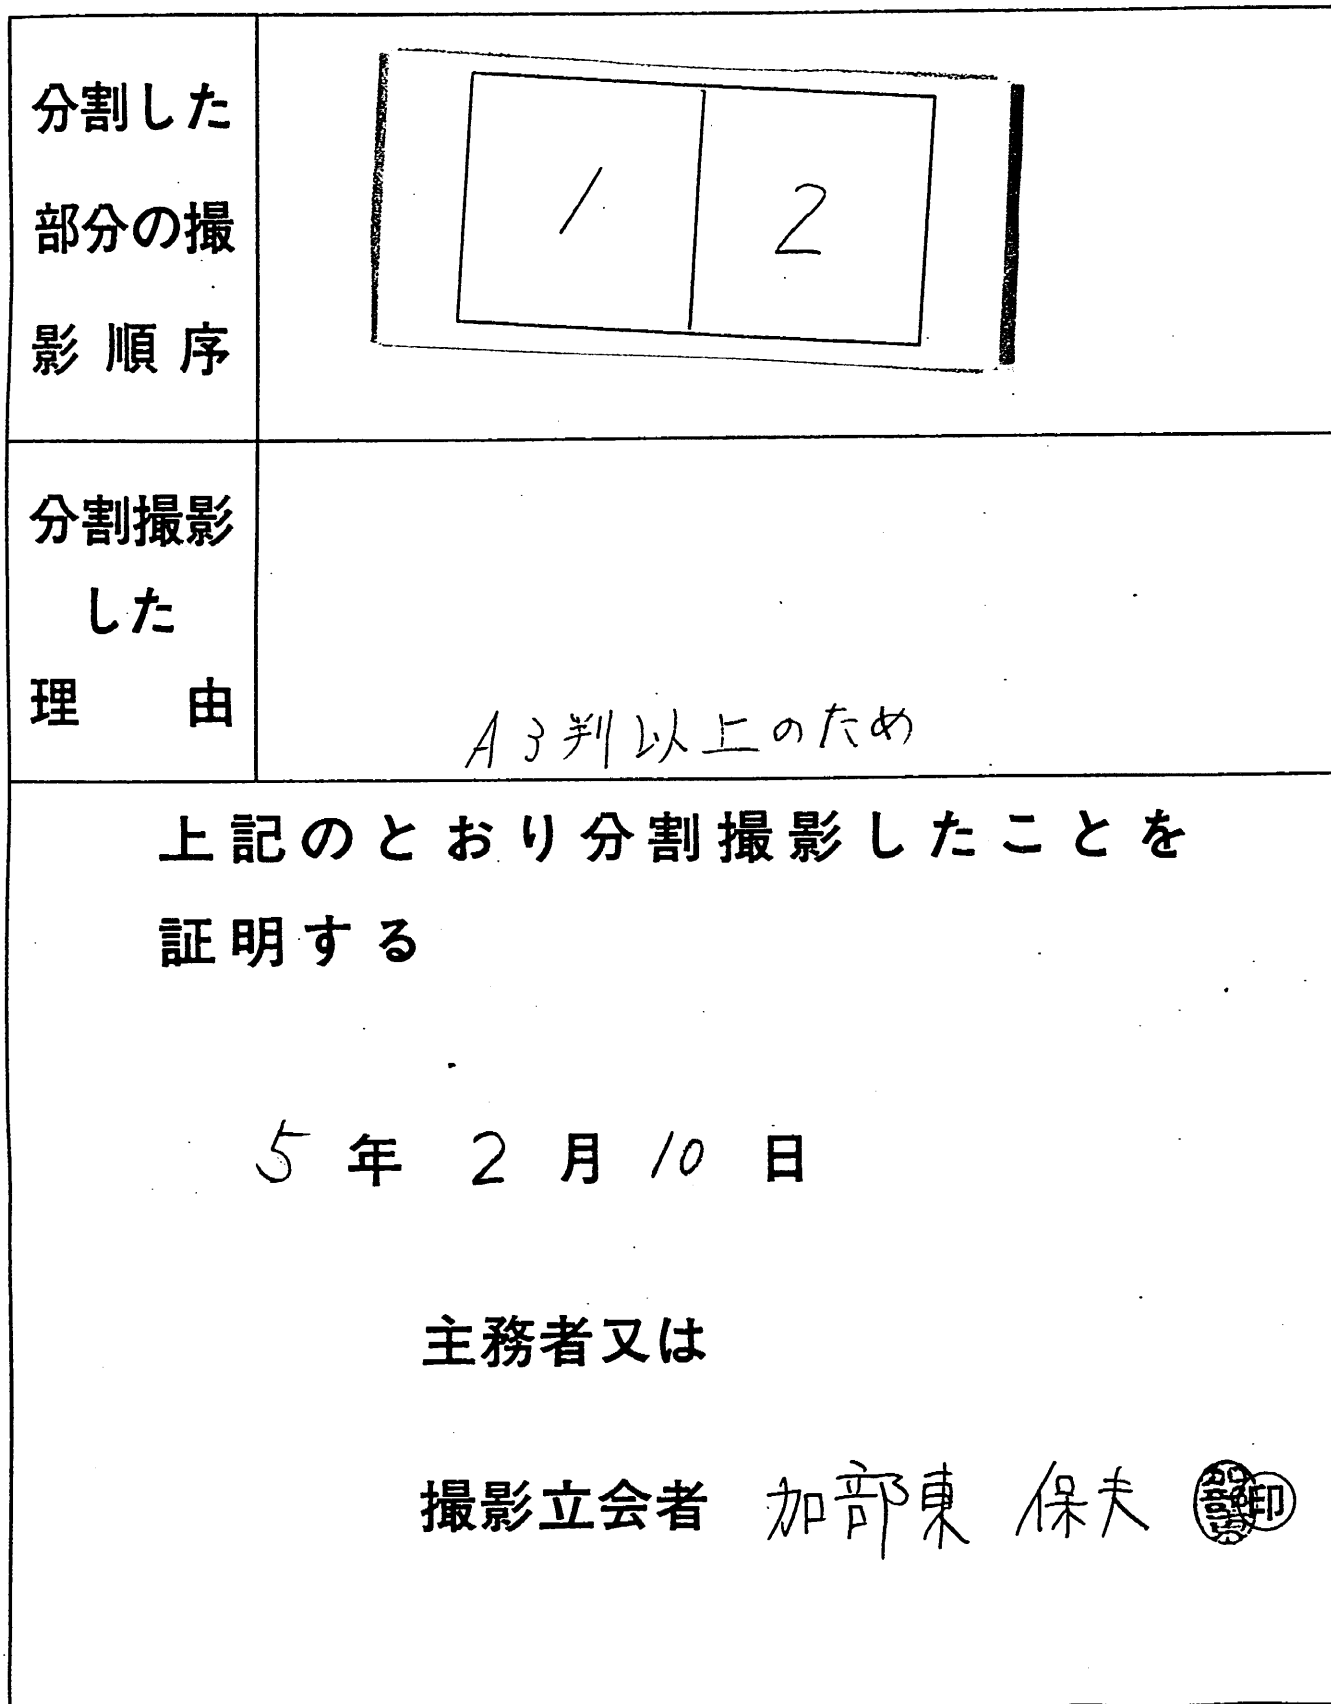 分割した
部分の撮
影順序
1 2
分割撮影
した
理由
A3判以上のため
上記のとおり分割撮影したことを
証明する
5年 2月 10日
主務者又は
撮影立会者 加部東 保夫 印